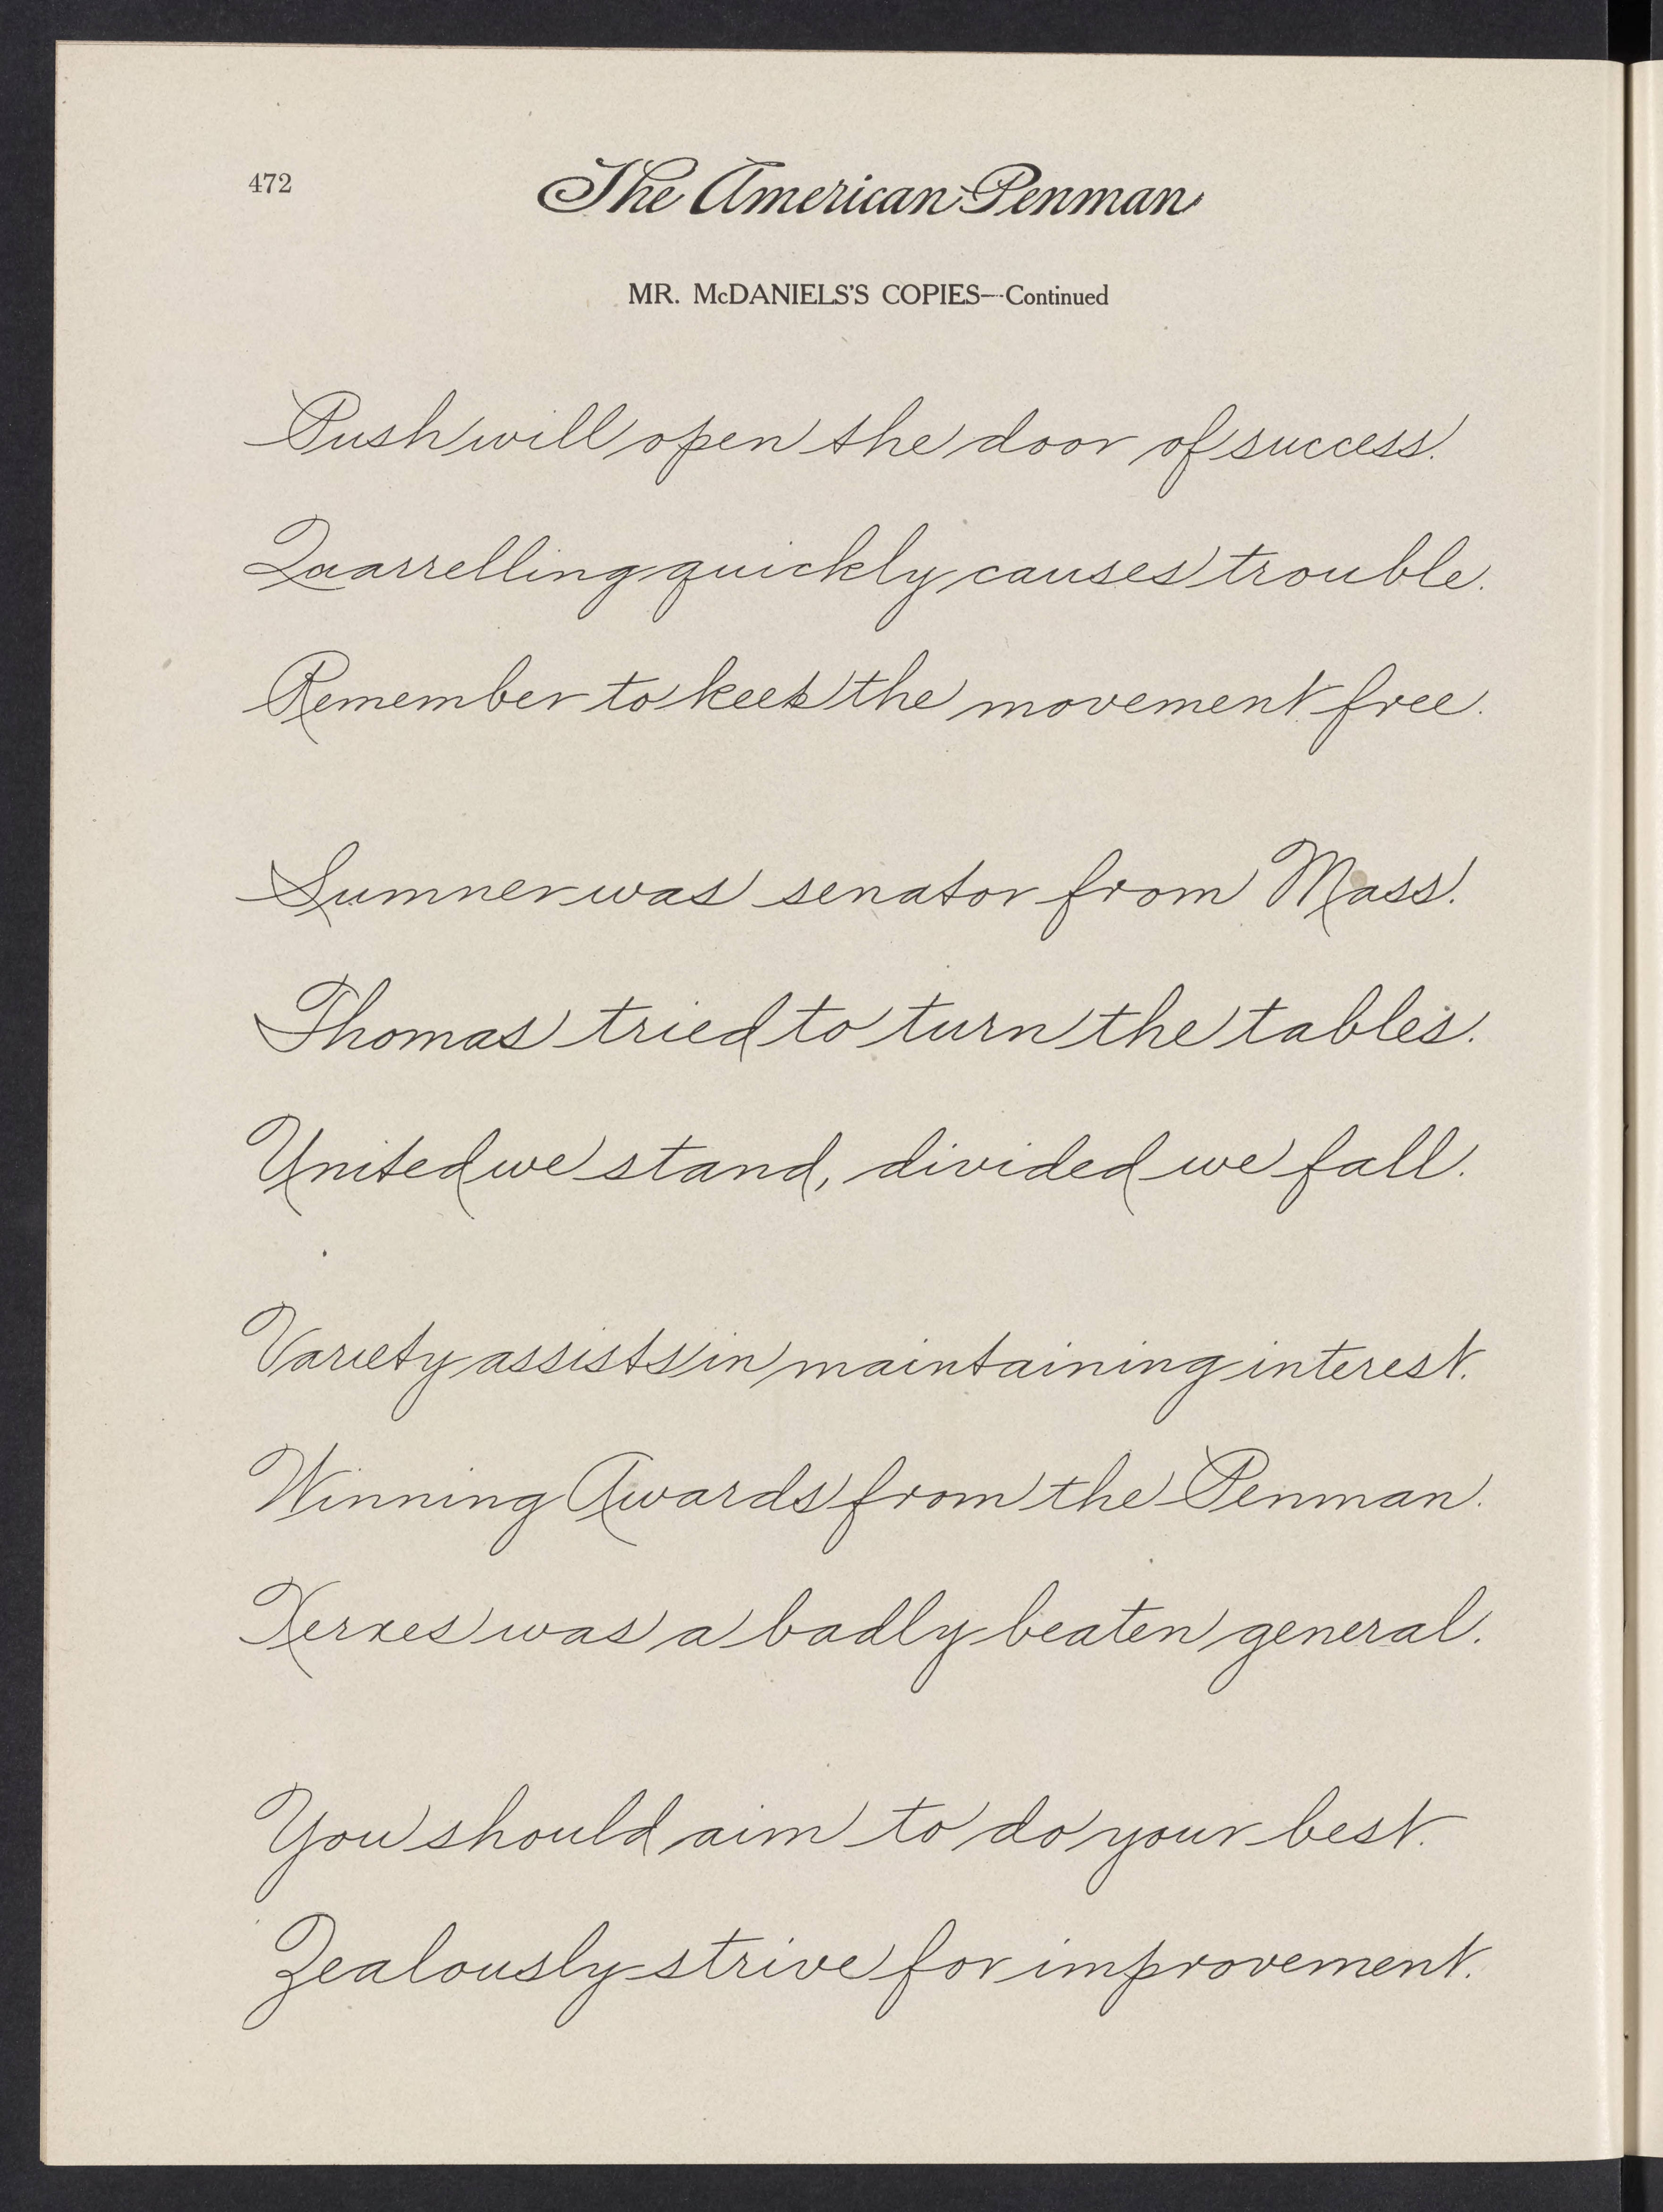 472
The American Penman
MR. McDANIELS'S COPIES—Continued
Push will open the door of success.
Quarrelling quickly causes trouble.
Remember to keep the movement free.
Sumner was senator from Mass.
Thomas tried to turn the tables.
United we stand, divided we fall.
Variety assists in maintaining interest.
Winning Awards from the Penman.
Xerxes was a badly beaten general.
You should aim to do your best.
Zealously strive for improvement.